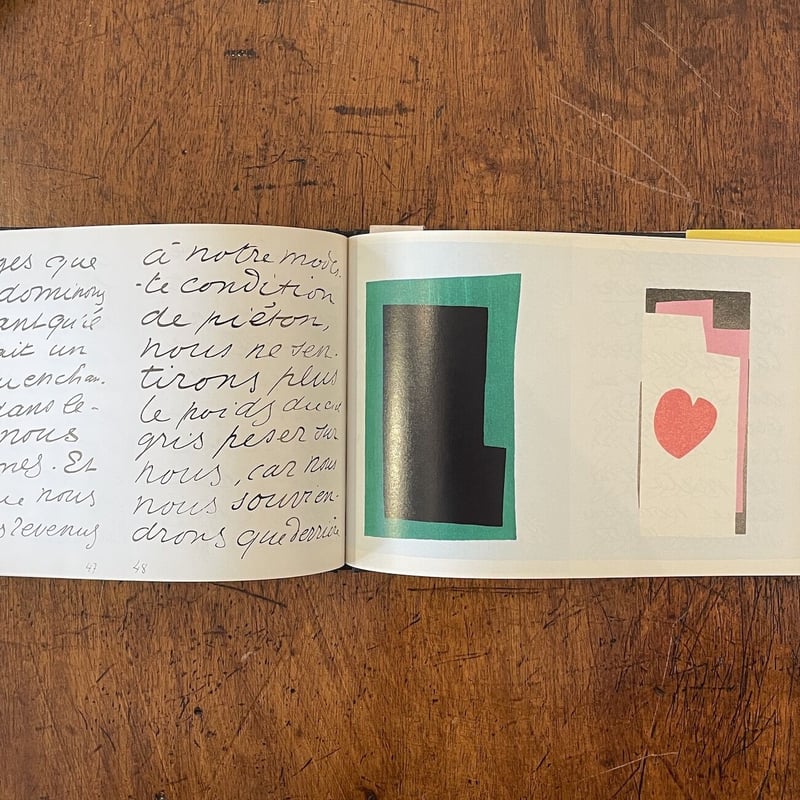 ges que
dominons
ant qu'é
ait un
u enchan-
dans le-
nous
nes. Et
ue nous
s revenus
47
à notre modes-
-te condition
de piéton,
nous ne sen-
tirons plus
le poids du ciel
gris peser sur
nous, car nous
nous souvien-
drons que derrière
48